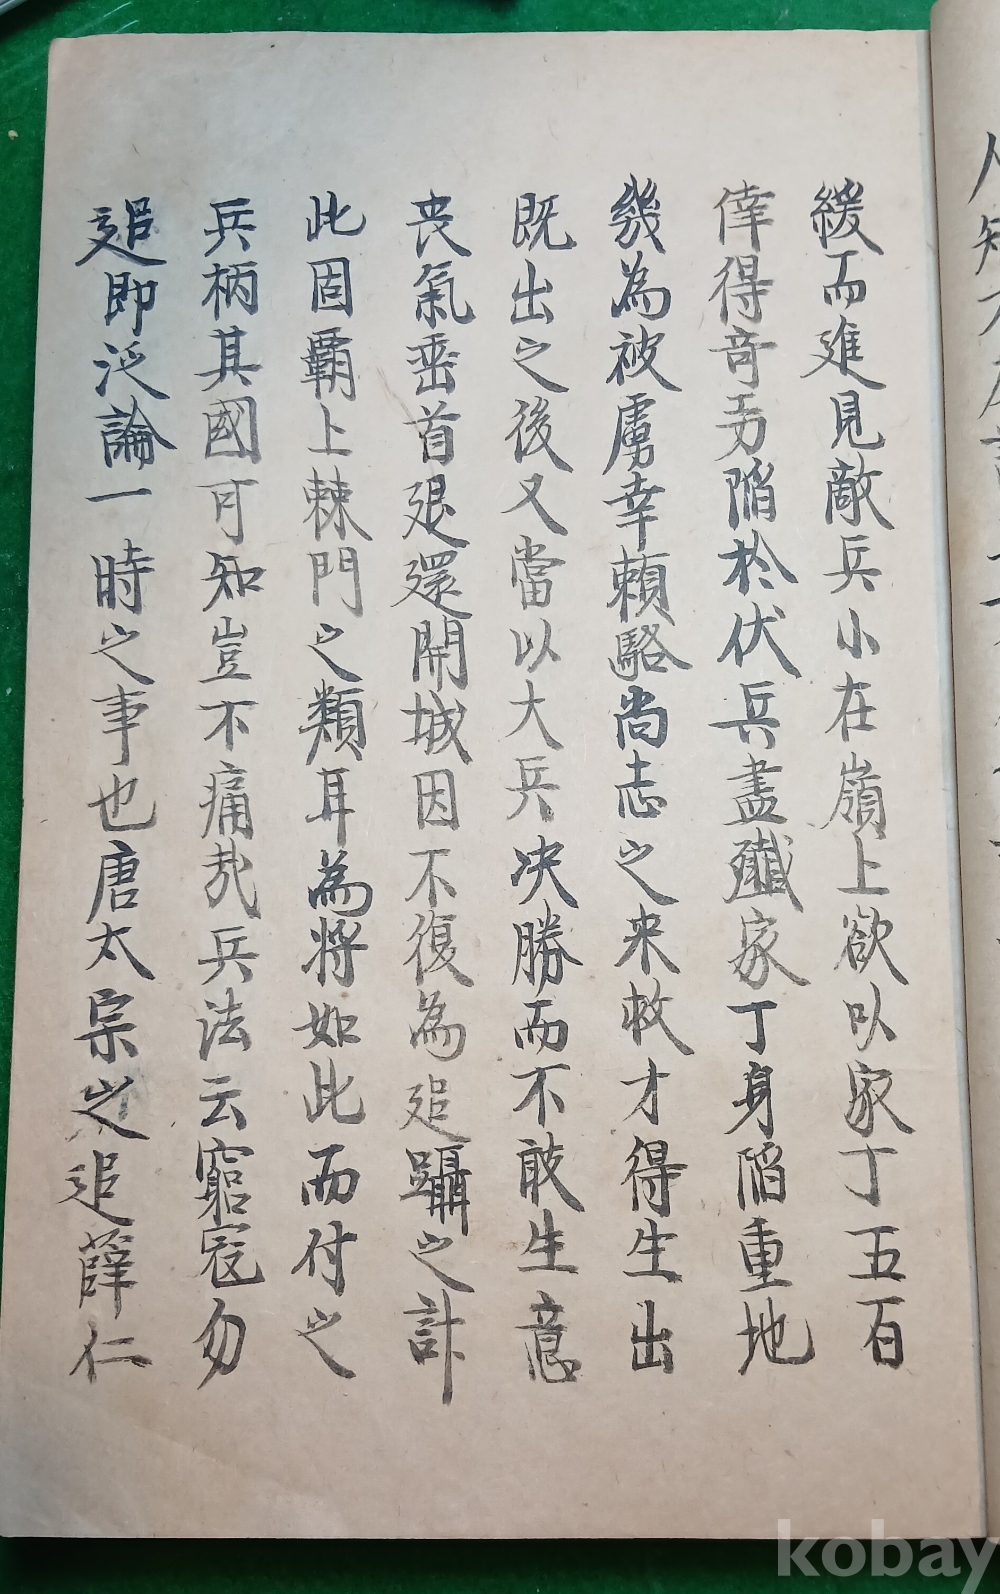 緩而進見敵兵小在嶺上欲以家丁五百
倖得奇勇陷於伏兵盡殲家丁身陷重地
幾為被虜幸賴駱尚志之来救才得生出
既出之後又當以大兵决勝而不敢生意
喪氣垂首退還開城因不復為追躡之計
此固覇上棘門之類耳為將如此而付之
兵柄其國可知豈不痛哉兵法云窮寇勿
追即泛論一時之事也唐太宗之追薛仁
kobay